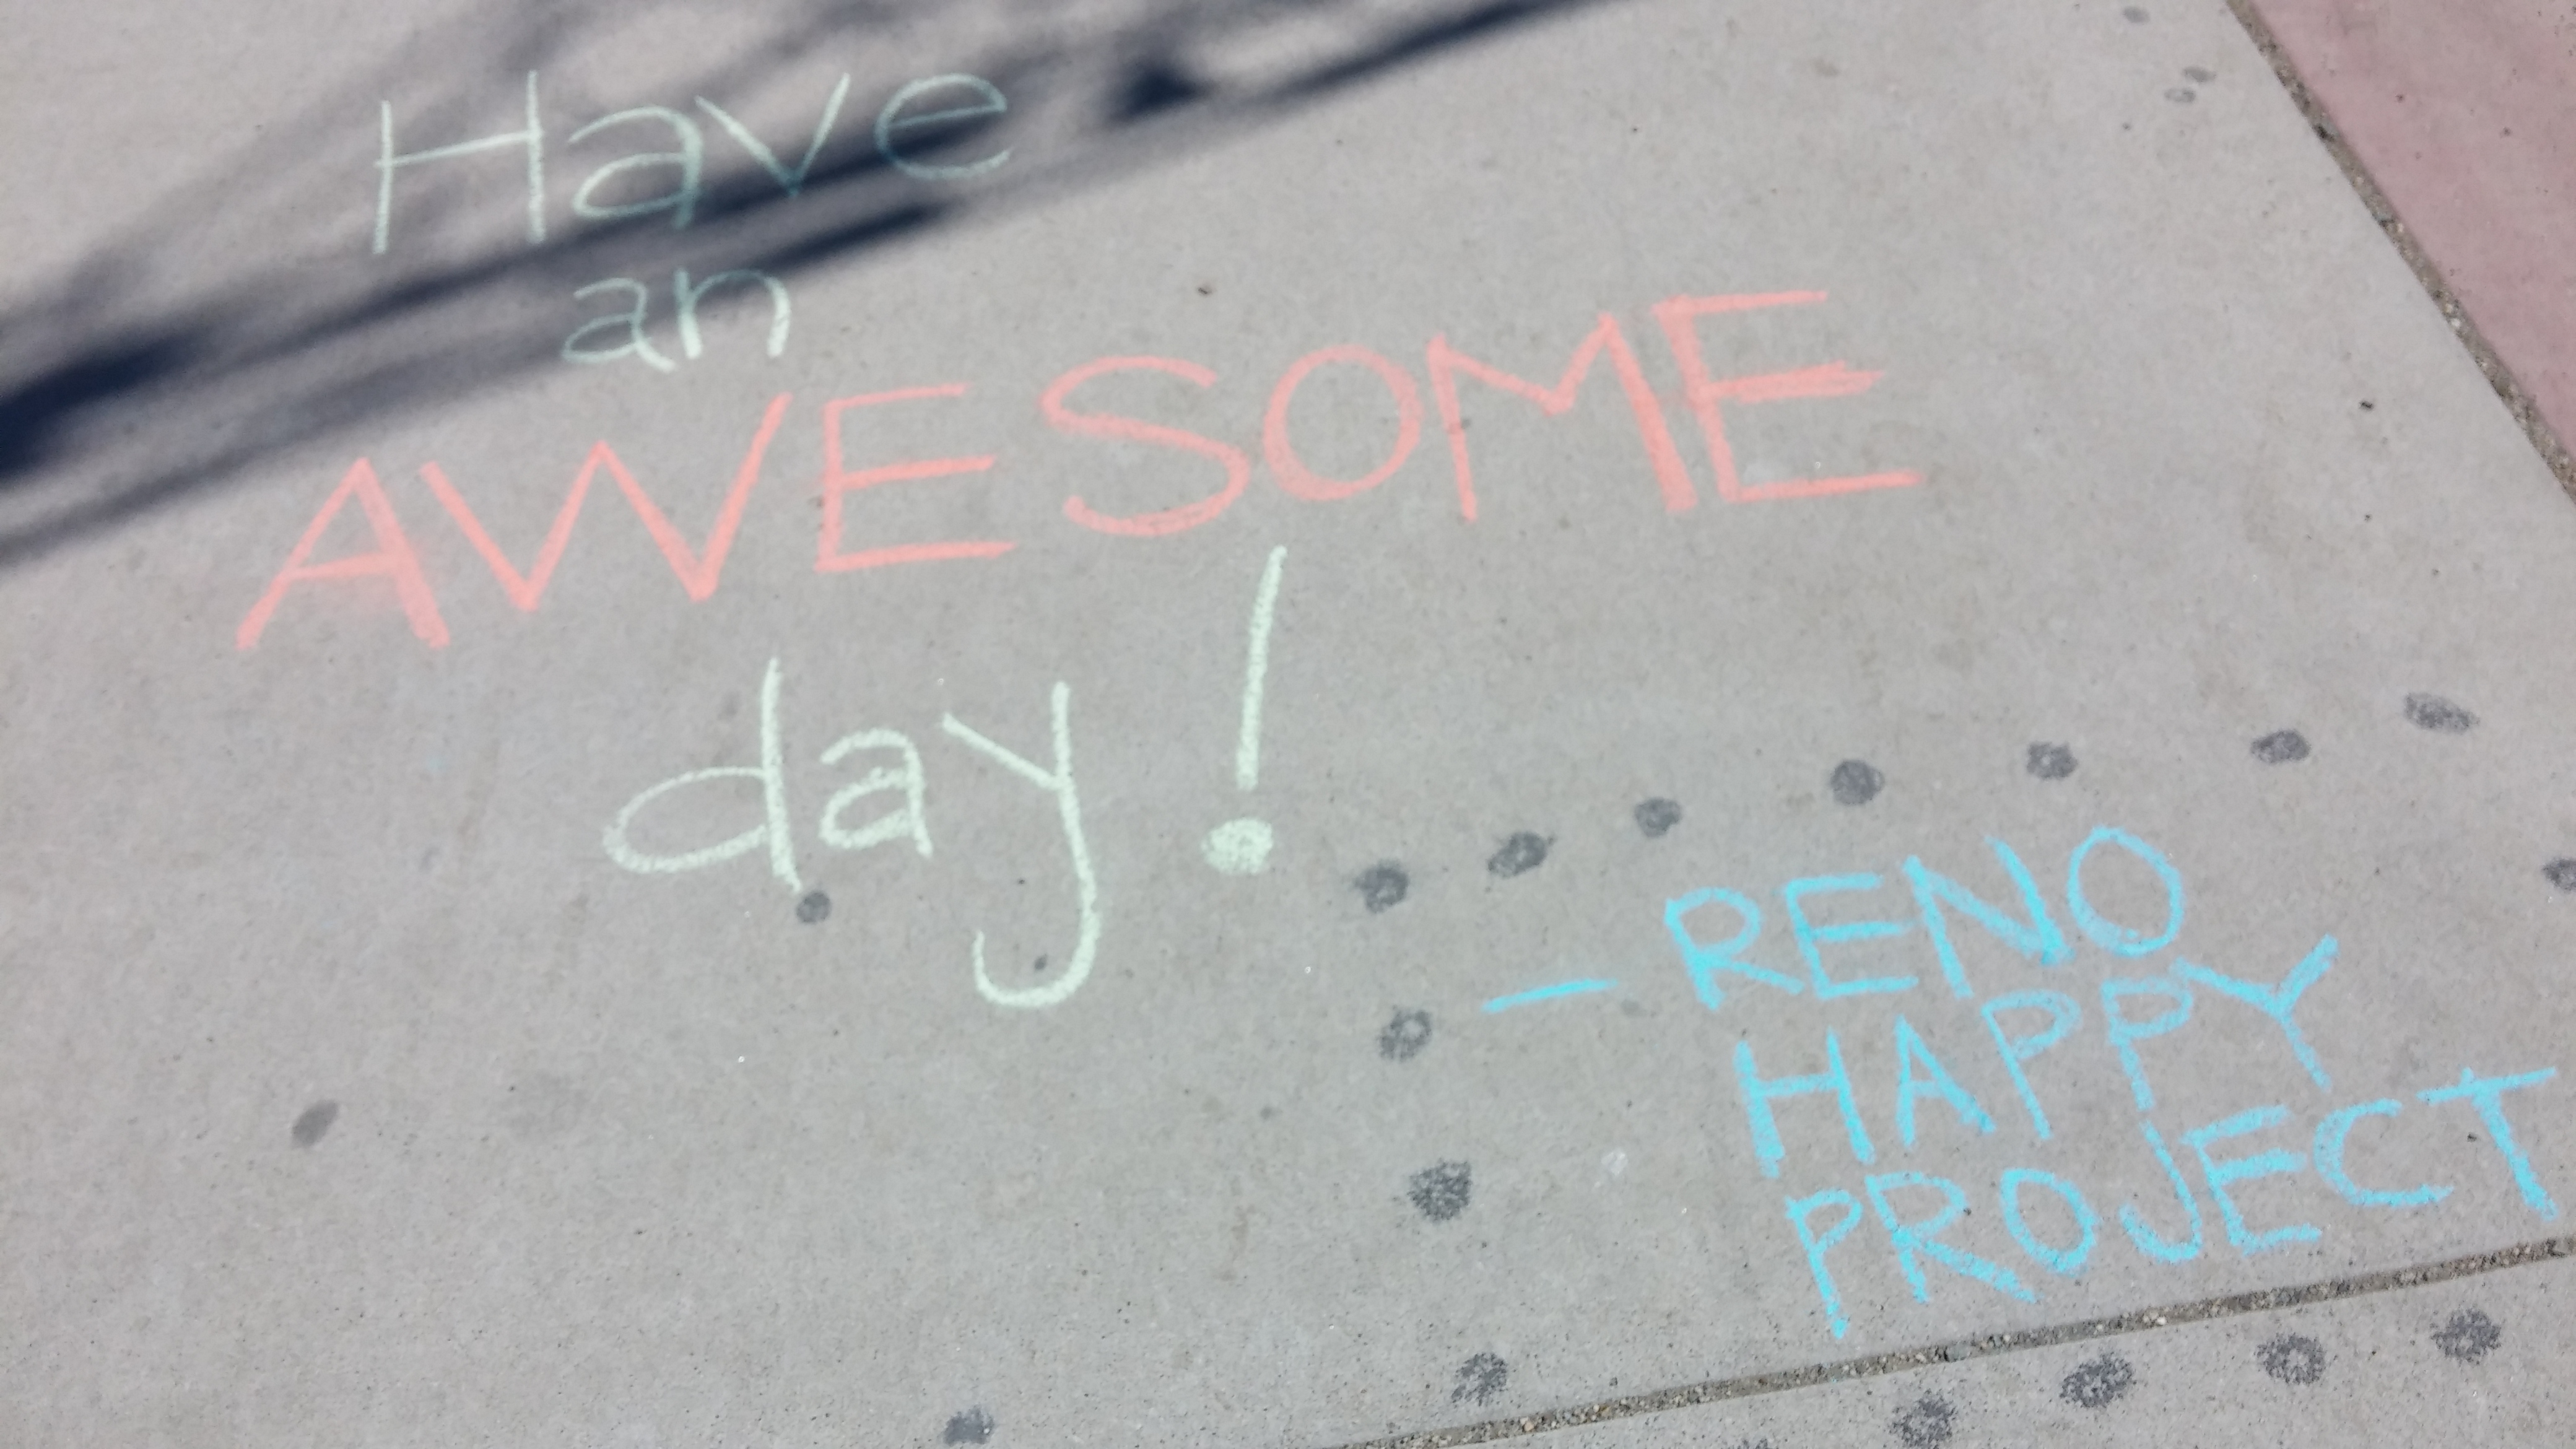 Have
an
AWESOME
day!
— RENO
HAPPY
PROJECT